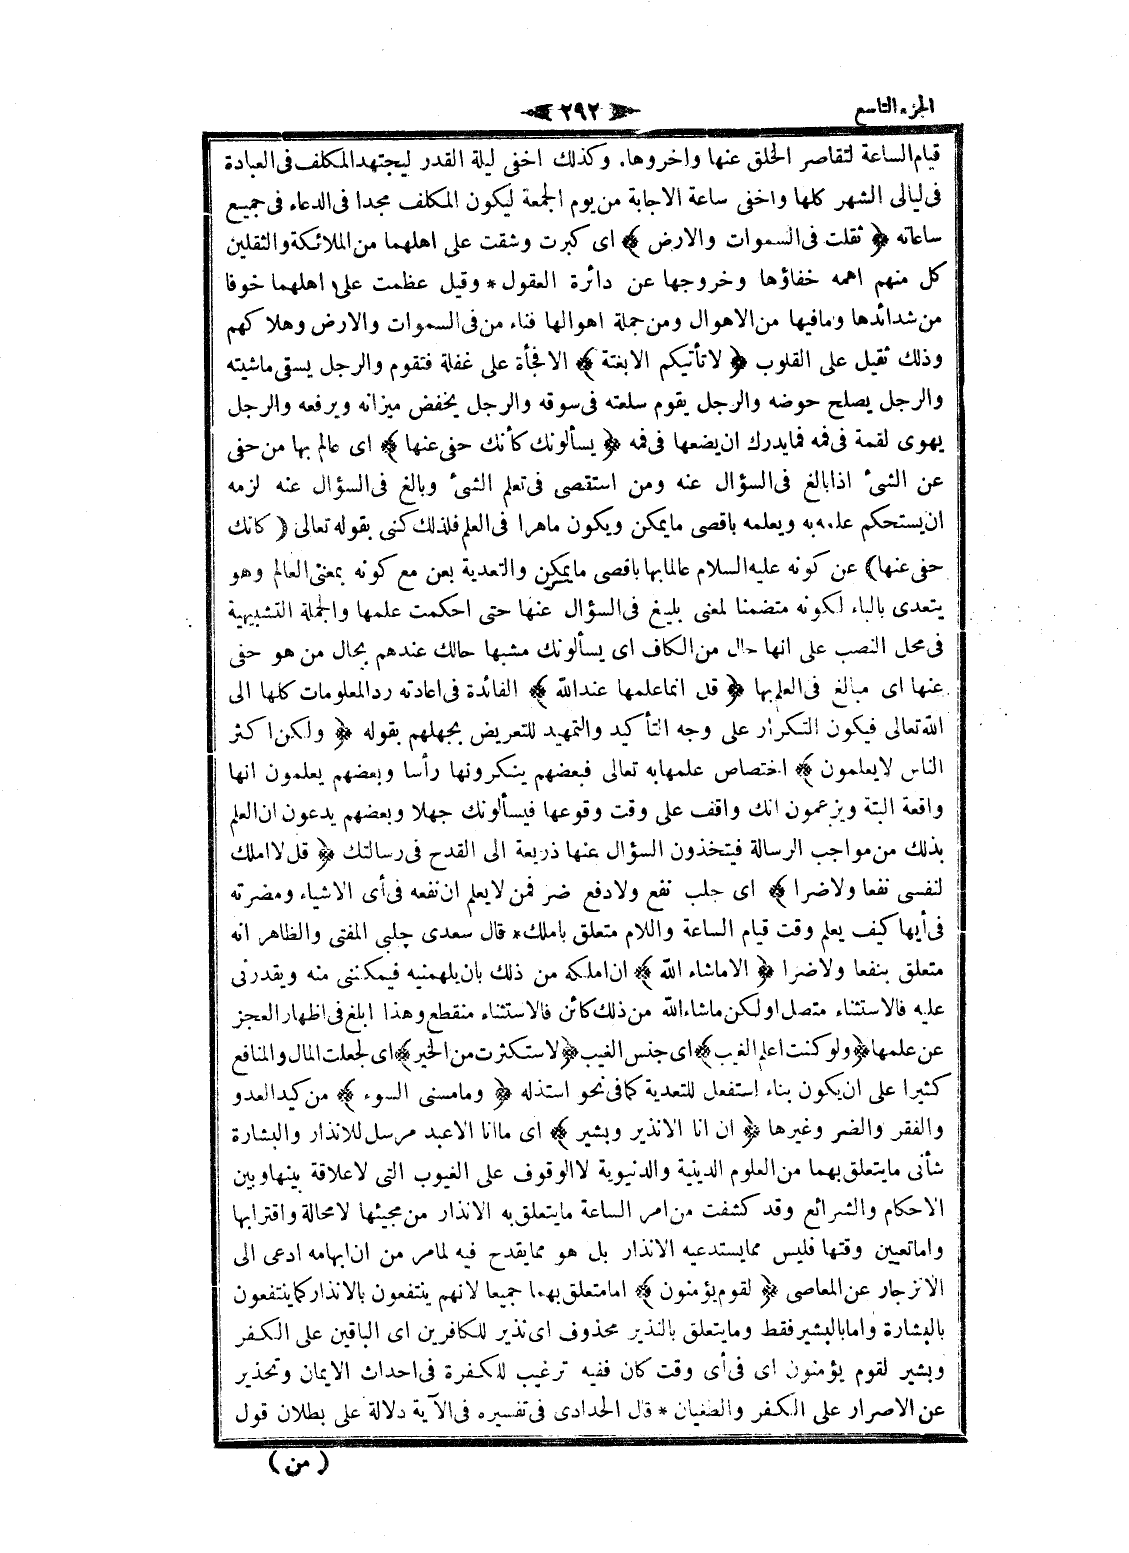 الجزء التاسع
٢٩٢
قيام الساعة لتقاصر الخلق عنها واخروها. وكذلك اخفى ليلة القدر ليجتهد المكلف فى العبادة
فى ليالى الشهر كلها واخفى ساعة الاجابة من يوم الجمعة ليكون المكلف مجدا فى الدعاء فى جميع
ساعاته ﴿ ثقلت فى السموات والارض ﴾ اى كبرت وشقت على اهلهما من الملائكة والثقلين
كل منهم اهمه خفاؤها وخروجها عن دائرة العقول * وقيل عظمت على اهلهما خوفا
من شدائدها ومافيها من الاهوال ومن جملة اهوالها فناء من فى السموات والارض وهلاكهم
وذلك ثقيل على القلوب ﴿ لا تأتيكم الابغتة ﴾ الافجأة على غفلة فتقوم والرجل يسقى ماشيته
والرجل يصلح حوضه والرجل يقوم سلعته فى سوقه والرجل يخفض ميزانه ويرفعه والرجل
يهوى لقمة فى فمه فمايدرك ان يضعها فى فمه ﴿ يسألونك كأنك حفى عنها ﴾ اى عالم بها من حفى
عن الشئ اذابالغ فى السؤال عنه ومن استقصى فى تعلم الشئ وبالغ فى السؤال عنه لزمه
ان يستحكم علمه به ويعلمه باقصى مايمكن ويكون ماهرا فى العلم فلذلك كنى بقوله تعالى ( كانك
حفى عنها) عن كونه عليه السلام عالمابها باقصى مايمكن والتعدية بعن مع كونه بمعنى العالم وهو
يتعدى بالباء لكونه متضمنا لمعنى بليغ فى السؤال عنها حتى احكمت علمها والجملة التشبيهية
فى محل النصب على انها حال من الكاف اى يسألونك مشبها حالك عندهم بحال من هو حفى
عنها اى مبالغ فى العلم بها ﴿ قل انما علمها عند الله ﴾ الفائدة فى اعادته رد المعلومات كلها الى
الله تعالى فيكون التكرار على وجه التأكيد والتمهيد للتعريض بجهلهم بقوله ﴿ ولكن اكثر
الناس لايعلمون ﴾ اختصاص علمهابه تعالى فبعضهم ينكرونها رأسا وبعضهم يعلمون انها
واقعة البتة ويزعمون انك واقف على وقت وقوعها فيسألونك جهلا وبعضهم يدعون ان العلم
بذلك من مواجب الرسالة فيتخذون السؤال عنها ذريعة الى القدح فى رسالتك ﴿ قل لا املك
لنفسى نفعا ولاضرا ﴾ اى جلب نفع ولادفع ضر فمن لايعلم ان نفعه فى أى الاشياء ومضرته
فى أيها كيف يعلم وقت قيام الساعة واللام متعلق باملك* قال سعدى چلبى المفتى والظاهر انه
متعلق بنفعا ولاضرا ﴿ الاماشاء الله ﴾ ان املكه من ذلك بان يلهمنيه فيمكننى منه ويقدرنى
عليه فالاستثناء متصل او لكن ماشاء الله من ذلك كائن فالاستثناء منقطع وهذا ابلغ فى اظهار العجز
عن علمها﴿ ولو كنت اعلم الغيب﴾ اى جنس الغيب ﴿لاستكثرت من الخير﴾ اى لجعلت المال والمنافع
كثيرا على ان يكون بناء استفعل للتعدية كما فى نحو استذله ﴿ ومامسنى السوء ﴾ من كيد العدو
والفقر والضر وغيرها ﴿ ان انا الانذير وبشير ﴾ اى ما انا الاعبد مرسل للانذار والبشارة
شأنى مايتعلق بهما من العلوم الدينية والدنيوية لاالوقوف على الغيوب التى لاعلاقة بينها وبين
الاحكام والشرائع وقد كشفت من امر الساعة مايتعلق به الانذار من مجيئها لامحالة واقترابها
واماتعيين وقتها فليس ممايستدعيه الانذار بل هو ممايقدح فيه لمامر من ان ابهامه ادعى الى
الانزجار عن المعاصى ﴿ لقوم يؤمنون ﴾ امامتعلق بهما جميعا لانهم ينتفعون بالانذار كماينتفعون
بالبشارة وامابالبشير فقط ومايتعلق بالنذير محذوف اى نذير للكافرين اى الباقين على الكفر
وبشير لقوم يؤمنون اى فى أى وقت كان ففيه ترغيب للكفرة فى احداث الايمان وتحذير
عن الاصرار على الكفر والطغيان * قال الحدادى فى تفسيره فى الآية دلالة على بطلان قول
( من )